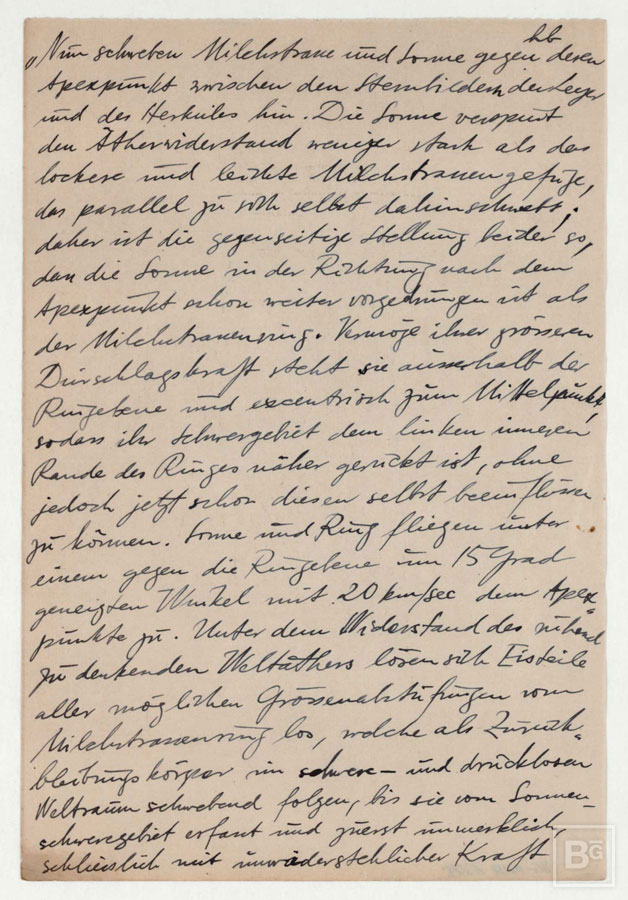 hb
„Nun schweben Milchstrasse und Sonne gegen deren
Apexpunkt zwischen den Sternbildern der Leyer
und des Herkules hin. Die Sonne verspürt
den Ätherwiderstand weniger stark als das
lockere und leichte Milchstrassengefüge,
das parallel zu sich selbst dahinschwebt;
daher ist die gegenseitige Stellung beider so,
dass die Sonne in der Richtung nach dem
Apexpunkt schon weiter vorgedrungen ist als
der Milchstrassenring. Vermöge ihrer grösseren
Durschlagskraft steht sie ausserhalb der
Ringebene und excentrisch zum Mittelpunkt,
sodass ihr Schwergebiet dem linken inneren
Rande des Ringes näher gerückt ist, ohne
jedoch jetzt schon diesen selbst beeinflussen
zu können. Sonne und Ring fliegen unter
einem gegen die Ringebene um 15 Grad
geneigten Winkel mit 20 km/sec dem Apex-
punkte zu. Unter dem Widerstand des ruhend
zu denkenden Weltäthers lösen sich Eisteile
aller möglichen Grössenabstufungen vom
Milchstrassenring los, welche als Zurück-
bleibungskörper im schwere- und drucklosen
Weltraum schwebend folgen, bis sie vom Sonnen-
schweregebiet erfasst und zuerst unmerklich,
schliesslich mit unwiderstehlicher Kraft
BG